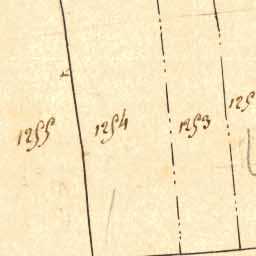 1255
1254
1253
125